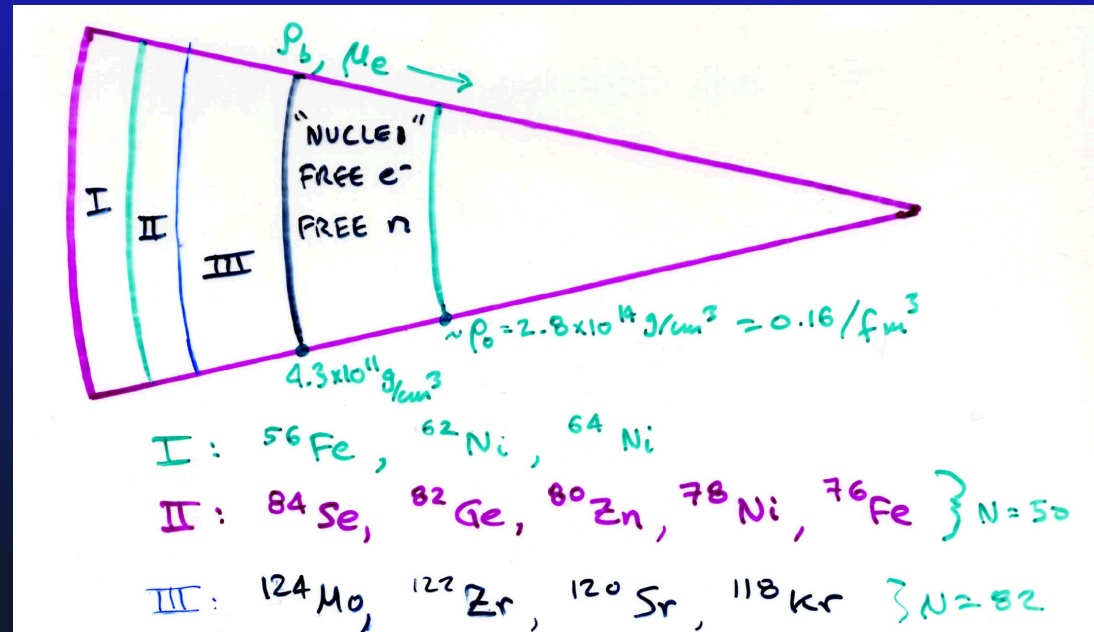 ρb, μe →
"NUCLEI"
FREE e⁻
FREE n
I
II
III
~ρ₀ = 2.8x10¹⁴ g/cm³ = 0.16/fm³
4.3x10¹¹ g/cm³
I : ⁵⁶Fe, ⁶²Ni, ⁶⁴Ni
II : ⁸⁴Se, ⁸²Ge, ⁸⁰Zn, ⁷⁸Ni, ⁷⁶Fe } N=50
III : ¹²⁴Mo, ¹²²Zr, ¹²⁰Sr, ¹¹⁸Kr } N=82